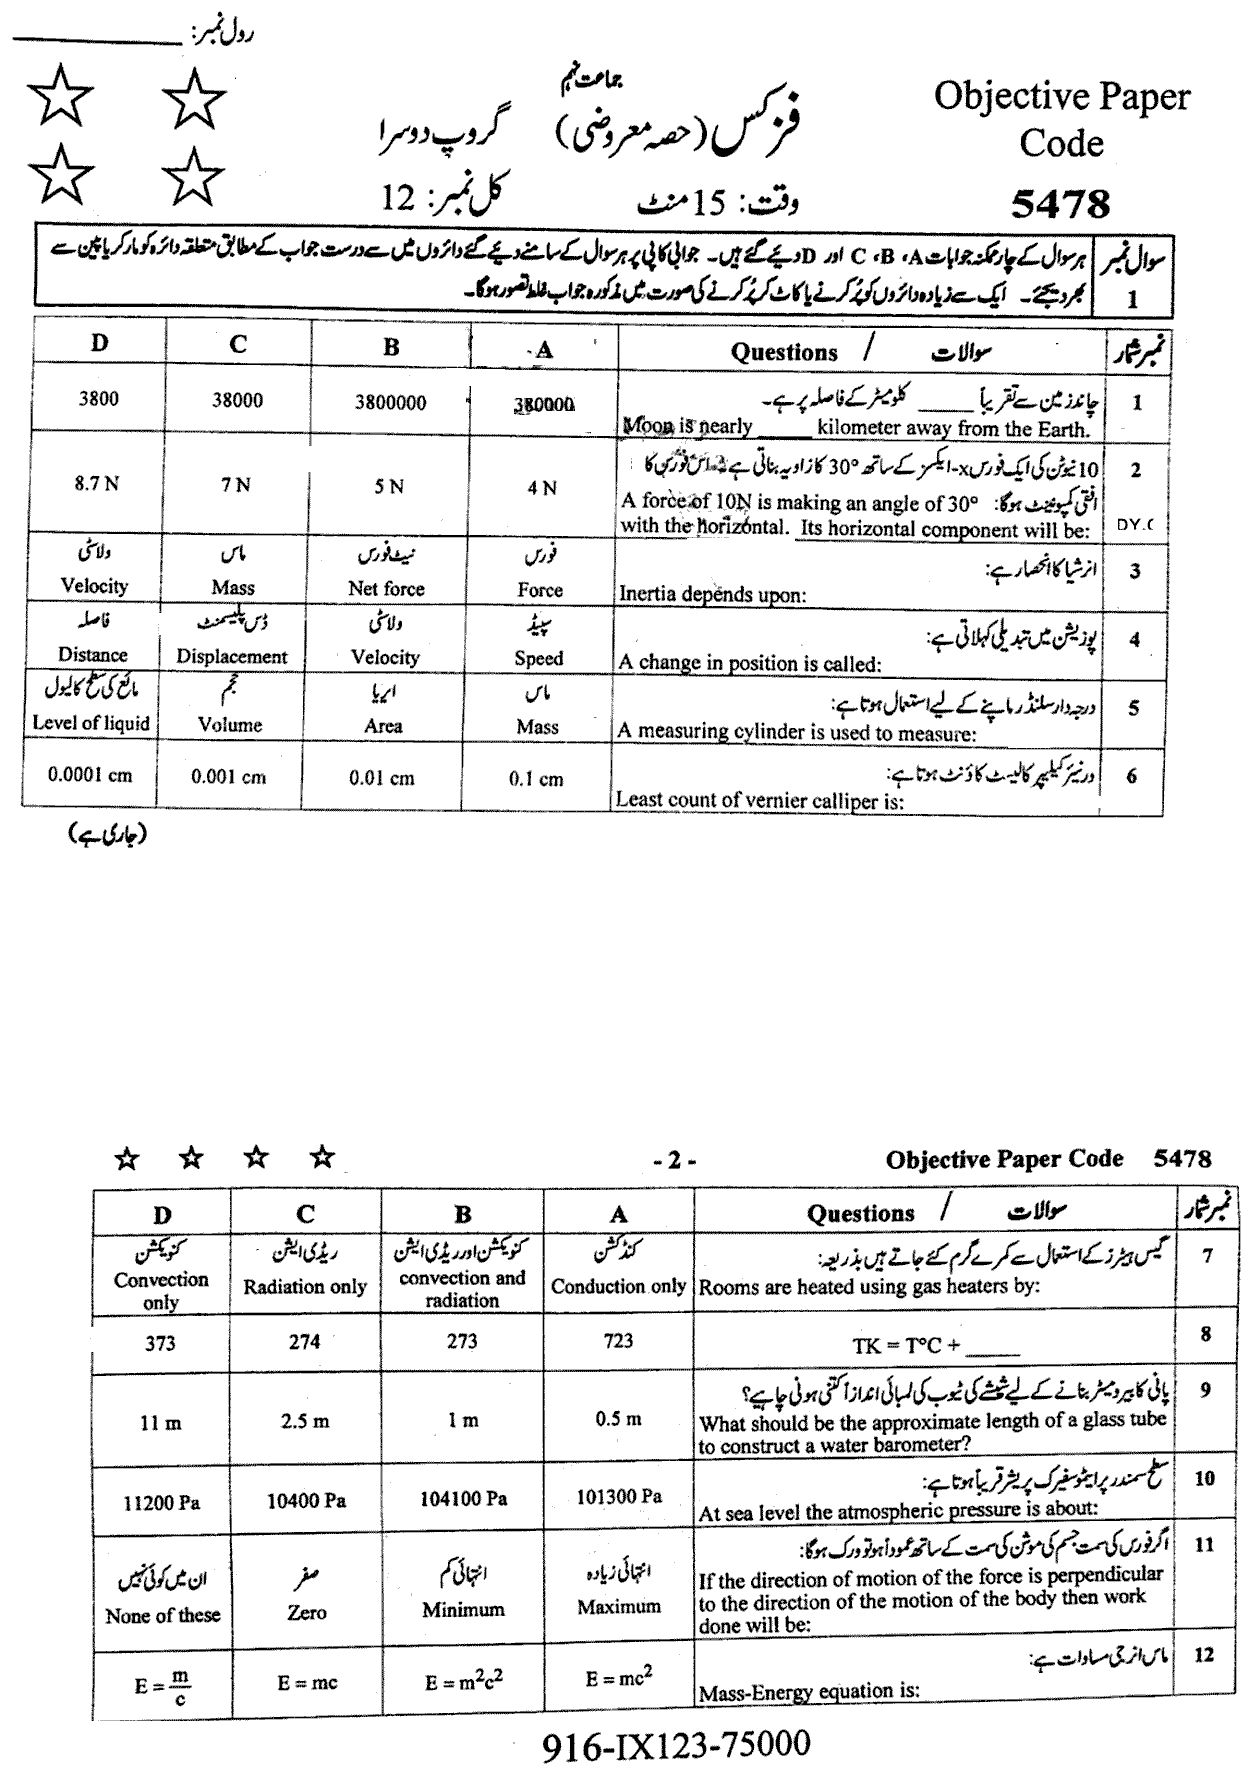 رول نمبر: ____________
جماعت نہم
Objective Paper
Code
5478
فزکس (حصہ معروضی) گروپ دوسرا
وقت: 15 منٹ کل نمبر: 12
سوال نمبر 1
ہر سوال کے چار ممکنہ جوابات A، B، C اور D دیئے گئے ہیں۔ جوابی کاپی پر ہر سوال کے سامنے دیئے گئے دائروں میں سے درست جواب کے مطابق متعلقہ دائرہ کو مارکر یا پین سے
بھر دیجئے۔ ایک سے زیادہ دائروں کو پُر کرنے یا کاٹ کر پُر کرنے کی صورت میں مذکورہ جواب غلط تصور ہوگا۔
D C B A Questions / سوالات نمبر شمار
1 چاند زمین سے تقریباً _____ کلومیٹر کے فاصلہ پر ہے۔
3800 38000 3800000 380000
Moon is nearly _____ kilometer away from the Earth.
2 10 نیوٹن کی ایک فورس x-ایکسز کے ساتھ 30° کا زاویہ بناتی ہے۔ اس فورس کا
افقی کمپوننٹ ہوگا:
8.7 N 7 N 5 N 4 N
A force of 10N is making an angle of 30°
with the horizontal. Its horizontal component will be:
DY.C
3 انرشیا کا انحصار ہے:
ولاسٹی ماس نیٹ فورس فورس
Velocity Mass Net force Force
Inertia depends upon:
4 پوزیشن میں تبدیلی کہلاتی ہے:
فاصلہ ڈس پلیسمنٹ ولاسٹی سپیڈ
Distance Displacement Velocity Speed
A change in position is called:
5 درجہ دار سلنڈر ماپنے کے لیے استعمال ہوتا ہے:
مائع کی سطح کا لیول حجم ایریا ماس
Level of liquid Volume Area Mass
A measuring cylinder is used to measure:
6 ورنیئر کیلیپر کا لیسٹ کاؤنٹ ہوتا ہے:
0.0001 cm 0.001 cm 0.01 cm 0.1 cm
Least count of vernier calliper is:
(جاری ہے)
-2- Objective Paper Code 5478
D C B A Questions / سوالات نمبر شمار
7 گیس ہیٹرز کے استعمال سے کمرے گرم کئے جاتے ہیں بذریعہ:
کنویکشن ریڈی ایشن کنویکشن اور ریڈی ایشن کنڈکشن
Convection only Radiation only convection and radiation Conduction only
Rooms are heated using gas heaters by:
8 TK = T°C + _____
373 274 273 723
9 پانی کا بیرومیٹر بنانے کے لیے شیشے کی ٹیوب کی لمبائی اندازاً کتنی ہونی چاہیے؟
11 m 2.5 m 1 m 0.5 m
What should be the approximate length of a glass tube
to construct a water barometer?
10 سطح سمندر پر ایٹموسفیرک پریشر قریباً ہوتا ہے:
11200 Pa 10400 Pa 104100 Pa 101300 Pa
At sea level the atmospheric pressure is about:
11 اگر فورس کی سمت جسم کی موشن کی سمت کے ساتھ عموداً ہو تو ورک ہوگا:
ان میں کوئی نہیں صفر انتہائی کم انتہائی زیادہ
None of these Zero Minimum Maximum
If the direction of motion of the force is perpendicular
to the direction of the motion of the body then work
done will be:
12 ماس انرجی مساوات ہے:
E = m/c E = mc E = m²c² E = mc²
Mass-Energy equation is:
916-IX123-75000